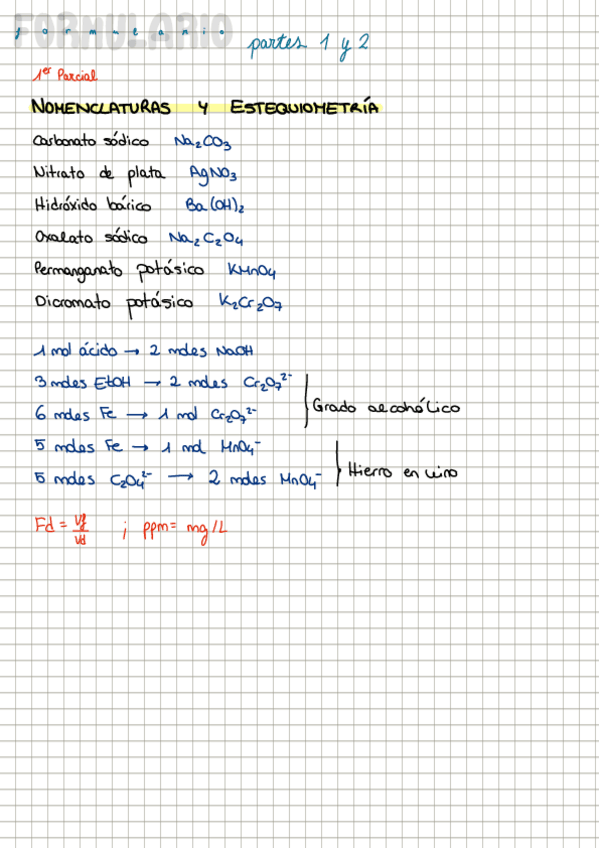 FORMULARIO
formulario partes 1 y 2
1er Parcial
NOMENCLATURAS Y ESTEQUIOMETRÍA
Carbonato sódico Na₂CO₃
Nitrato de plata AgNO₃
Hidróxido bárico Ba(OH)₂
Oxalato sódico Na₂C₂O₄
Permanganato potásico KMnO₄
Dicromato potásico K₂Cr₂O₇
1 mol ácido → 2 moles NaOH
3 moles EtOH → 2 moles Cr₂O₇²⁻
6 moles Fe → 1 mol Cr₂O₇²⁻
Grado alcohólico
5 moles Fe → 1 mol MnO₄⁻
5 moles C₂O₄²⁻ → 2 moles MnO₄⁻
Hierro en vino
Fd = Vf/Vd ; ppm = mg/L